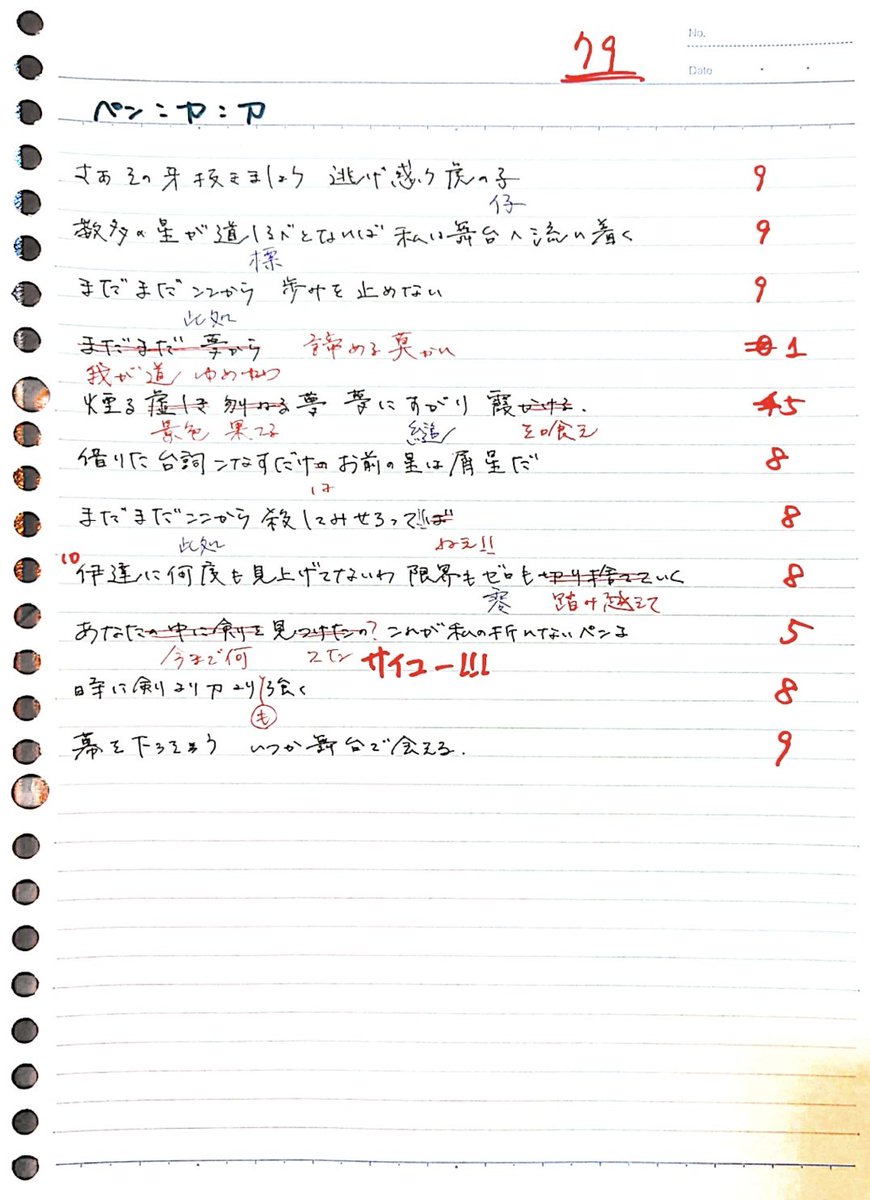 79
No.
Date
ペン:力:刀
さあその牙抜きましょう 逃げ惑う虎の子 9
仔
数多の星が道しるべとなれば 私は舞台へ流れ着く 9
標
まだまだここから 歩みを止めない 9
此処
まだまだ 夢から 諦める莫かれ 1
我が道 ゆめゆめ
煙る 夢 夢にすがり 霞かける. 5
景色 果てる 縋 を喰え
借りた台詞こなすだけの お前の星は屑星だ 8
は
まだまだここから 殺してみせろってば 8
此処 ねぇ!!
10
伊達に何度も見上げてないわ 限界もゼロも切り捨てていく 8
零 踏み越えて
あなたの中に剣を見つけたの? これが私の折れないペンよ 5
今まで何 サイコー!!!
時に剣より刀より強く 8
も
幕を下ろそう いつか舞台で会える. 9